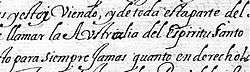 y estoy Viendo, y de toda esta parte del
llamar la Australia del Espiritu Santo
to para siempre Jamas quanto en derecho